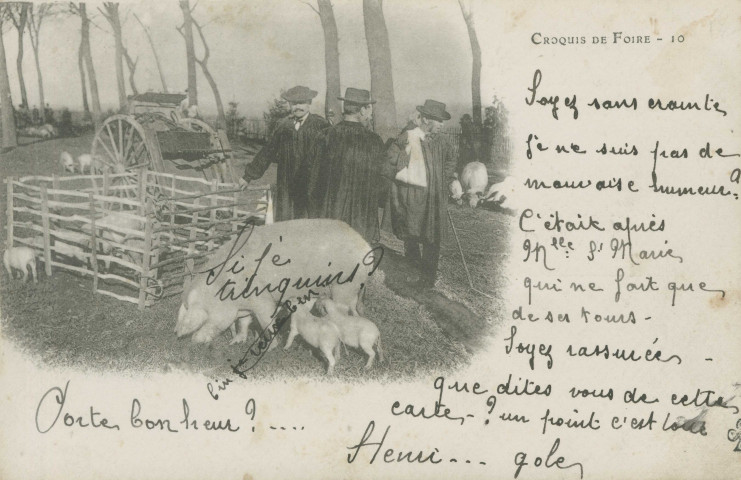 CROQUIS DE FOIRE - 10
Soyez sans crainte
Je ne suis pas de
mauvaise humeur?
C'était après
Mlle St Marie,
qui ne fait que
de ses tours -
Soyez rassurée -
que dites vous de cette
carte - ? un point c'est tout
Si jé
trinquins?
Porte bonheur? ....
Henri ---